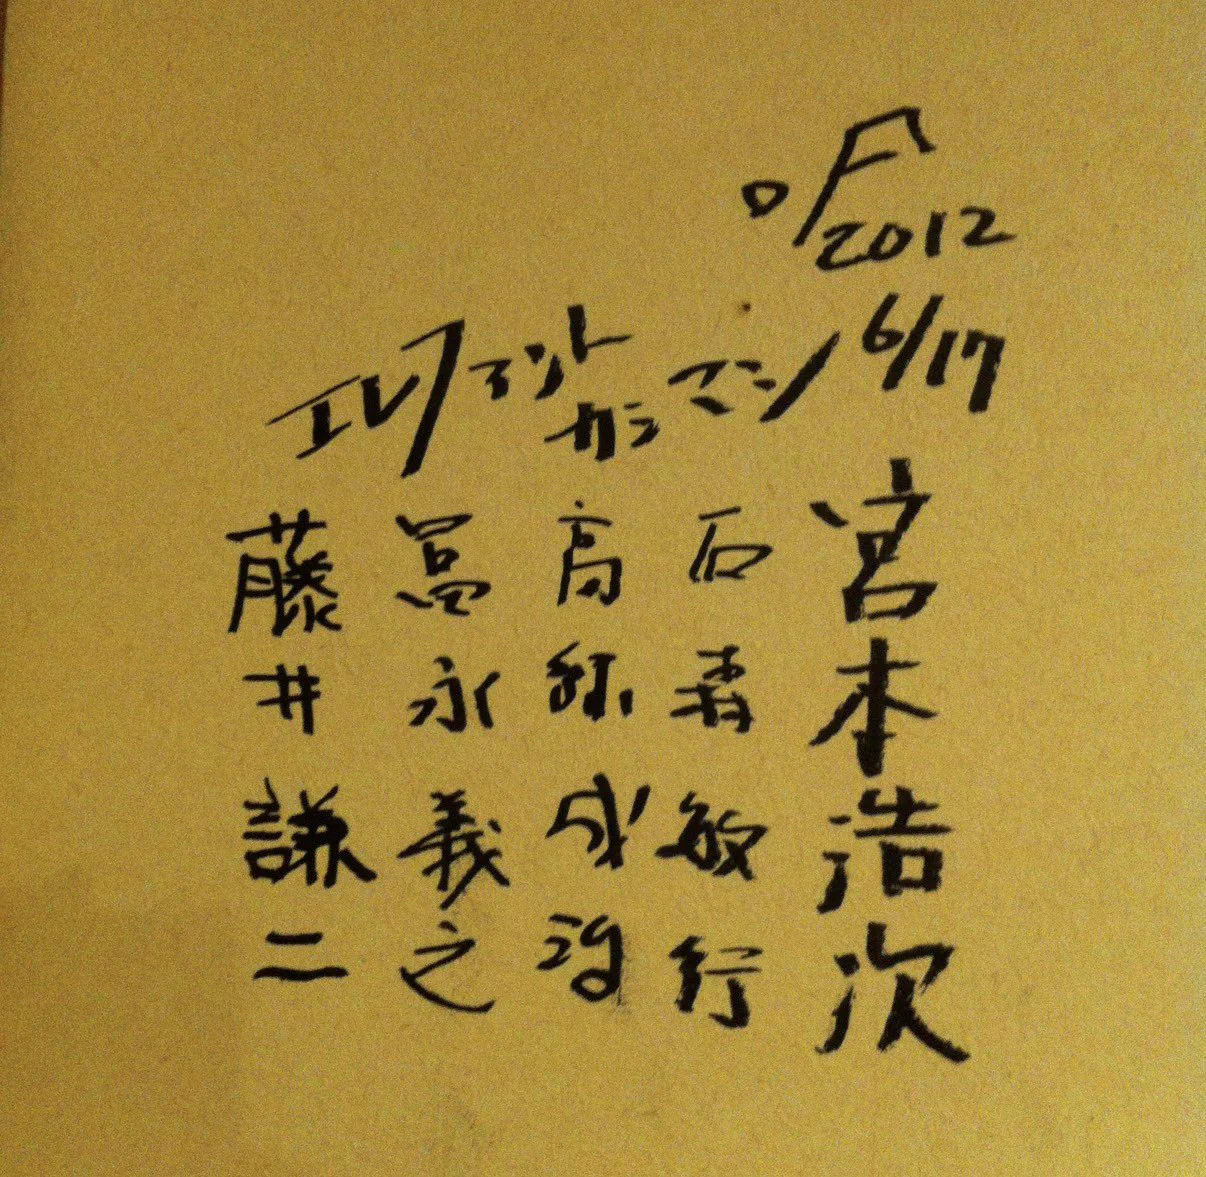 2012
6/17
エレファント
カシマシ
宮本浩次
石森敏行
高緑成治
冨永義之
藤井謙二